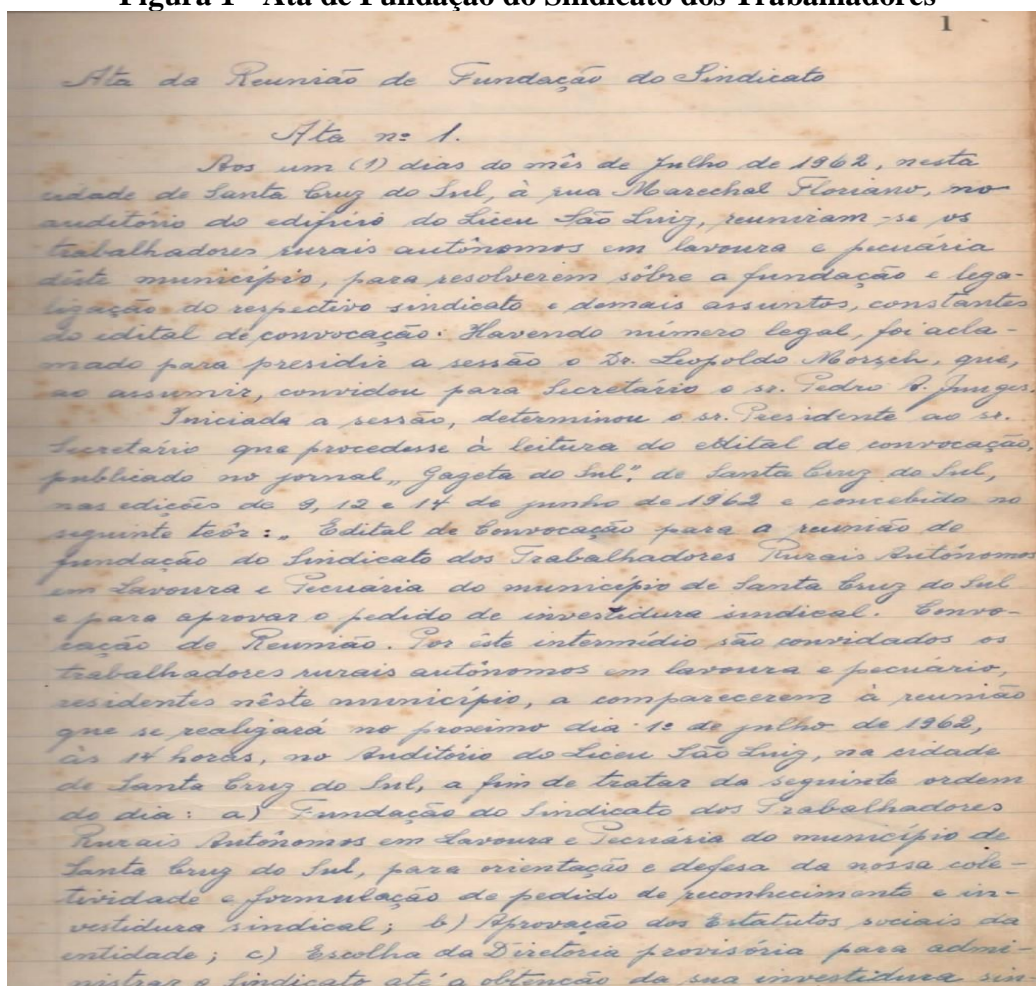 Figura 1 - Ata de Fundação do Sindicato dos Trabalhadores
1
Ata da Reunião de Fundação do Sindicato
Ata nº 1.
Aos um (1) dias do mês de Julho de 1962, nesta
cidade de Santa Cruz do Sul, à rua Marechal Floriano, no
auditório do edifício do Liceu São Luiz, reuniram-se os
trabalhadores rurais autônomos em lavoura e pecuária
dêste município, para resolverem sôbre a fundação e lega-
lização do respectivo sindicato e demais assuntos, constantes
do edital de convocação. Havendo número legal, foi acla-
mado para presidir a sessão o Dr. Leopoldo Morsch, que,
ao assumir, convidou para Secretário o sr. Pedro A. Junges
Iniciada a sessão, determinou o sr. Presidente ao sr.
Secretário que procedesse à leitura do edital de convocação,
publicado no jornal „Gazeta do Sul", de Santa Cruz do Sul,
nas edições de 9, 12 e 14 de junho de 1962 e concebido no
seguinte teôr: „Edital de Convocação para a reunião de
fundação do Sindicato dos Trabalhadores Rurais Autônomos
em Lavoura e Pecuária do município de Santa Cruz do Sul
e para aprovar o pedido de investidura sindical. Convo-
cação de Reunião. Por êste intermédio são convidados os
trabalhadores rurais autônomos em lavoura e pecuário,
residentes nêste município, a comparecerem à reunião
que se realizará no proximo dia 1º de julho de 1962,
às 14 horas, no Auditório do Liceu São Luiz, na cidade
de Santa Cruz do Sul, a fim de tratar da seguinte ordem
do dia: a) Fundação do Sindicato dos Trabalhadores
Rurais Autônomos em Lavoura e Pecuária do município de
Santa Cruz do Sul, para orientação e defesa da nossa cole-
tividade e formulação de pedido de reconhecimento e in-
vestidura sindical; b) Aprovação dos Estatutos sociais da
entidade; c) Escolha da Diretoria provisória para admi
nistrar o Sindicato até a obtenção da sua investidura sin